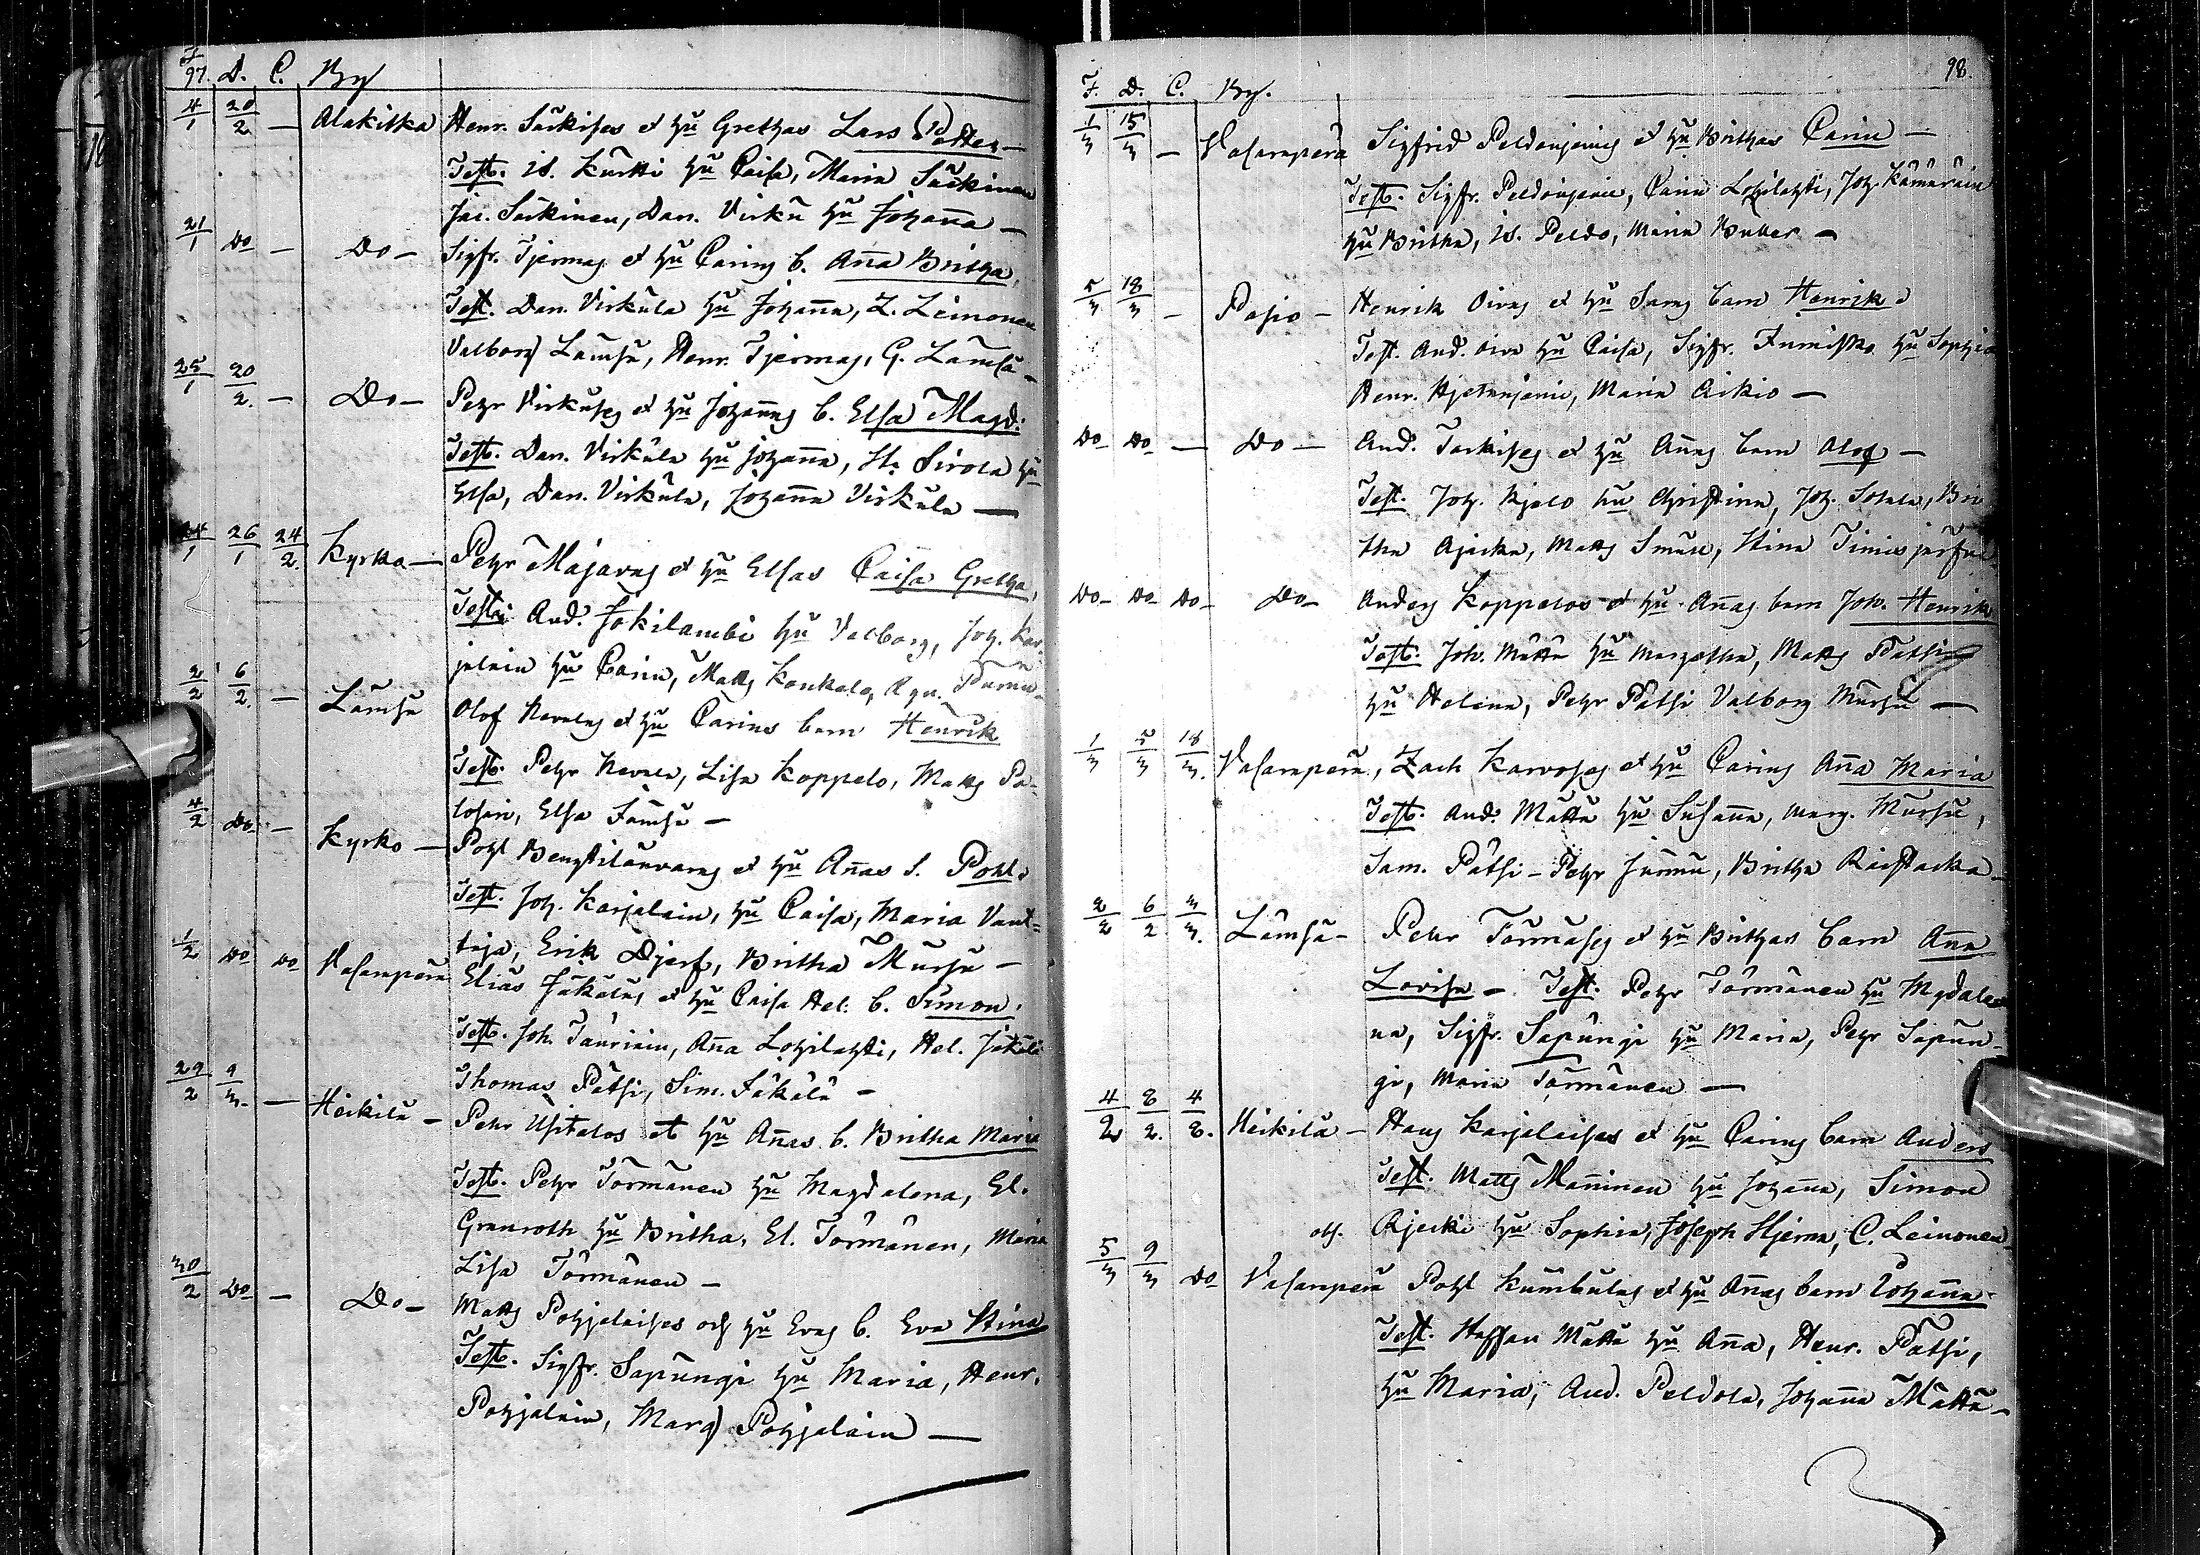 F. D. C. By
97.
4/1 20/2 — Alakitka Henr. Särkises et hu Grethas Lars Petter —
Test. Is. Kurtti hu Caisa, Maria Särkinen
Jac. Särkinen, Dan. Virku hu Johanna —
21/1 Do — Do — Sigfr. Tjermas et hu Carins b. Anna Britha,
Test. Dan. Virkula hu Johanna, Z. Leinonen
Valborg Lämsä, Henr. Tjermas, G. Lämsä —
25/1 20/2. — Do — Pehr Virkuses et hu Johannas b. Elsa Magd:
Test. Dan. Virkula hu Johanna, H. Sirola hu
Elsa, Dan. Virkula, Johanna Virkula —
24/1 26/1 24/2. Kyrko — Pehr Majavas et hu Elsas Caisa Gretha,
Test. And. Jokilambi hu Valborg, Joh. Kar-
jalain hu Carin, Matts Konkelo,
2/2 6/2. — Lämsä Olof Nevalas et hu Carins barn Henrik
Test. Pehr Nevala, Lisa Koppelo, Matts Pa-
losari, Elsa Lämsä —
4/2 Do — Kyrko — Pohl et hu Annas s. Pohl.
Test. Joh. Karjalain, hu Caisa, Maria Vant-
taja, Erik Djerf, Britha Mursu —
1/2 Do Do Vasarapera Elias Jäkäläs et hu Caisa Hel. b. Simon.
Test. Joh. Tauriain, Anna Lohilahti, Hel. Jäkälä
Thomas Pätsi, Sim. Jäkälä —
29/2 9/3. — Heikilä — Pehr Usitalos et hu Annas b. Britha Maria
Test. Pehr Törmänen hu Magdalena, El.
Granroth hu Britha, El. Törmänen, Maria
Lisa Törmänen —
30/2 Do — Do — Matts Pohjolaises och hu Evas b. Eva Stina
Test. Sigfr. Sapungi hu Maria, Henr.
Pohjalain, Marg Pohjalain —
98.
F. D. C. By.
1/3 15/3 — Vasarapera Sigfrid Peldonjemis et hu Brithas Carin —
Test. Sigfr. Peldonjemi, Carin Lohilahti, Joh. Kämäräin
hu Britha, Is. Peldo, Maria —
5/3 18/3 — Posio — Henrik Oivas et hu Saras barn Henrik.
Test. And. Oiva hu Caisa, Sigfr. Jumisko hu Sophia
Henr. Hjetanjemi, Maria Aikio —
Do Do — Do — And. Särkises et hu Annas barn Olof —
Test. Joh. Kjelo hu Christina, Joh. Sohala, Bri-
tha Ajacka, Matts Smuk, Stina Timisjärfvi
Do — Do Do — Do — Anders Koppelos et hu Annas barn Joh. Henrik
Test. Joh. Määttä hu Margetha, Matts Pätsi
hu Helena, Pehr Pätsi Valborg Mursu —
1/3 5/3 18/3. Vasarapera, Zach Karvoses et hu Carins Anna Maria
Test. And. Määttä hu Susanna, Marg. Mursu,
Sam. Pätsi — Pehr Jurmu, Britha Raistacka —
2/2 6/2 3/3. Lämsä — Pehr Törmäses et hu Brithas barn Anna
Lovisa — Test. Pehr Törmänen hu Magdale-
na, Sigfr. Sapungi hu Maria, Pehr Sapun-
gi, Maria Törmänen —
4/2 8/2. 4/8. Heikilä — Hans Karjalaises et hu Carins barn Anders
Test. Matts Manninen hu Johanna, Simon
och Ajacki hu Sophia, Joseph Hjerna, C. Leinonen —
5/3 9/3 Do Vasarapera Pohl Kumbulas et hu Annas barn Johanna.
Test. Staffan Määttä hu Anna, Henr. Pätsi,
hu Maria, And. Peldola, Johanna Määttä —